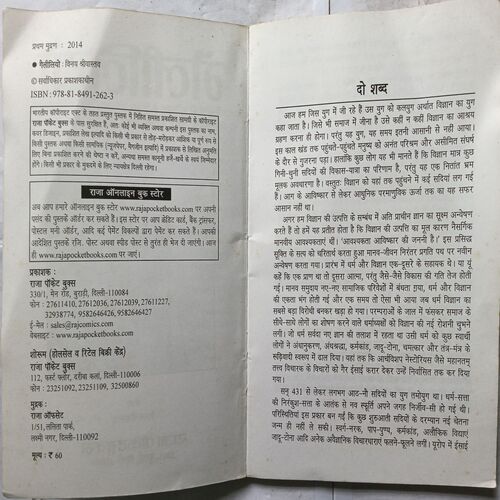 प्रथम मुद्रण : 2014
● गैलीलियो : विनय श्रीवास्तव
© सर्वाधिकार प्रकाशकाधीन
ISBN : 978-81-8491-262-3
भारतीय कॉपीराइट एक्ट के तहत प्रस्तुत पुस्तक में निहित समस्त प्रकाशित सामग्री के कॉपीराइट
राजा पॉकेट बुक्स के पास सुरक्षित हैं, अतः कोई भी व्यक्ति अथवा कम्पनी इस पुस्तक का नाम,
कवर डिजाइन, प्रकाशित लेख इत्यादि को किसी भी प्रकार से तोड़-मरोड़कर आंशिक या पूर्ण रूप से
किसी पुस्तक अथवा किसी सामयिक (न्यूजपेपर, मैगजीन इत्यादि) में प्रकाशक से लिखित अनुमति
लिए बिना प्रकाशित करने की चेष्टा न करें, अन्यथा समस्त कानूनी हर्जे-खर्चे के स्वयं जिम्मेदार
होंगे। किसी भी प्रकार के मुकदमे के लिए न्यायक्षेत्र दिल्ली रहेगा।
राजा ऑनलाइन बुक स्टोर
अब आप हमारे ऑनलाइन बुक स्टोर www.rajapocketbooks.com पर अपनी
पसंद की पुस्तकें ऑर्डर कर सकते हैं। इस स्टोर पर आप क्रेडिट कार्ड, बैंक ट्रांसफर,
पोस्टल मनी ऑर्डर, आदि कई पेमेंट विकल्पों द्वारा पेमेंट कर सकते हैं। आपकी
आदेशित पुस्तकें रजि. पोस्ट अथवा स्पीड पोस्ट से तुरंत ही भेज दी जाएंगी। आज
ही www.rajapocketbooks.com पर जाएं।
प्रकाशक :
राजा पॉकेट बुक्स
330/1, मेन रोड, बुराड़ी, दिल्ली-110084
फोन : 27611410, 27612036, 27612039, 27611227
32938774, 9582646426, 9582646427
ई-मेल : sales@rajcomics.com
वेबसाइट : www.rajapocketbooks.com
शोरूम (होलसेल व रिटेल बिक्री केंद्र)
राजा पॉकेट बुक्स
112, फर्स्ट फ्लोर, दरीबा कलां, दिल्ली-110006
फोन : 23251092, 23251109, 32500860
मुद्रक :
राजा ऑफसेट
1/51, ललिता पार्क,
लक्ष्मी नगर, दिल्ली-110092
मूल्य : ₹ 60
दो शब्द
आज हम जिस युग में जी रहे हैं उस युग को कलयुग अर्थात विज्ञान का युग
कहा जाता है। जिसे भी समाज में जीना है उसे कहीं न कहीं विज्ञान का आश्रय
ग्रहण करना ही होगा। परंतु यह युग, यह समय इतनी आसानी से नहीं आया।
इस काल खंड तक पहुंचते-पहुंचते मनुष्य को अनंत परिश्रम और असीमित संघर्ष
के दौर से गुजरना पड़ा। हालांकि कुछ लोग यह भी मानते हैं कि विज्ञान मात्र कुछ
गिनी-चुनी सदियों की विकास-यात्रा का परिणाम है, परंतु यह एक नितांत भ्रम
मूलक अवधारणा है। वस्तुतः विज्ञान को यहां तक पहुंचने में कई सदियां लग गई
हैं। आग के आविष्कार से लेकर आधुनिक परमाणविक ऊर्जा तक का यह सफर
आसान नहीं था।
अगर हम विज्ञान की उत्पत्ति के सम्बंध में अति प्राचीन ज्ञान का सूक्ष्म अन्वेषण
करते हैं तो हमें यह प्रतीत होता है कि विज्ञान की उत्पत्ति का मूल कारण नैसर्गिक
मानवीय आवश्यकताएं थीं। 'आवश्यकता आविष्कार की जननी है।' इस प्रसिद्ध
सूक्ति के सत्य को चरितार्थ करता हुआ मानव-जीवन निरंतर प्रगति पथ पर नवीन
अन्वेषण करता गया। प्रारंभ में धर्म और विज्ञान एक-दूसरे के सहायक थे। या यूं
कहें कि एक प्राण था तो दूसरा आत्मा, परंतु जैसे-जैसे विकास की गति तेज होती
गई। मानव समुदाय नए-नए सामाजिक परिवेशों में बंधता गया, धर्म और विज्ञान
की एकता भंग होती गई और एक समय तो ऐसा भी आया जब धर्म विज्ञान का
सबसे बड़ा विरोधी बनकर खड़ा हो गया। परम्पराओं के जाल में फंसकर समाज के
सीधे-साधे लोगों का शोषण करने वाले धर्माध्यक्षों को विज्ञान की नई रोशनी चुभने
लगी। जो धर्म सर्वदा नए ज्ञान की तलाश में रहता था उसी धर्म को कुछ स्वार्थी
लोगों ने अंधानुकरण, अंधश्रद्धा, कर्मकांड, जादू-टोना, चमत्कार और तंत्र-मंत्र के
रूढ़िवादी स्वरूप में ढाल दिया। यहां तक कि आर्चबिशप नेस्टोरियस जैसे महानतम्
तत्त्व विचारक के विचारों को गैर ईसाई करार देकर उन्हें निर्वासित तक कर दिया
गया।
सन् 431 से लेकर लगभग आठ-नौ सदियों का युग तमोयुग था। धर्म-सत्ता
की निरंकुश-सत्ता के आतंक से नव स्फूर्ति अपने जगह निर्जीव-सी हो गई थी।
परिस्थितियां इस प्रकार बन गई कि कुछ शुरुआती सदियों के दरम्यान नई चेतना
जन्म ही नहीं ले सकी। स्वर्ग-नरक, पाप-पुण्य, कर्मकांड, अलौकिक विद्याएं
जादू-टोना आदि अनेक अवैज्ञानिक विचारधाराएं फलने-फूलने लगीं। यूरोप में ईसाई